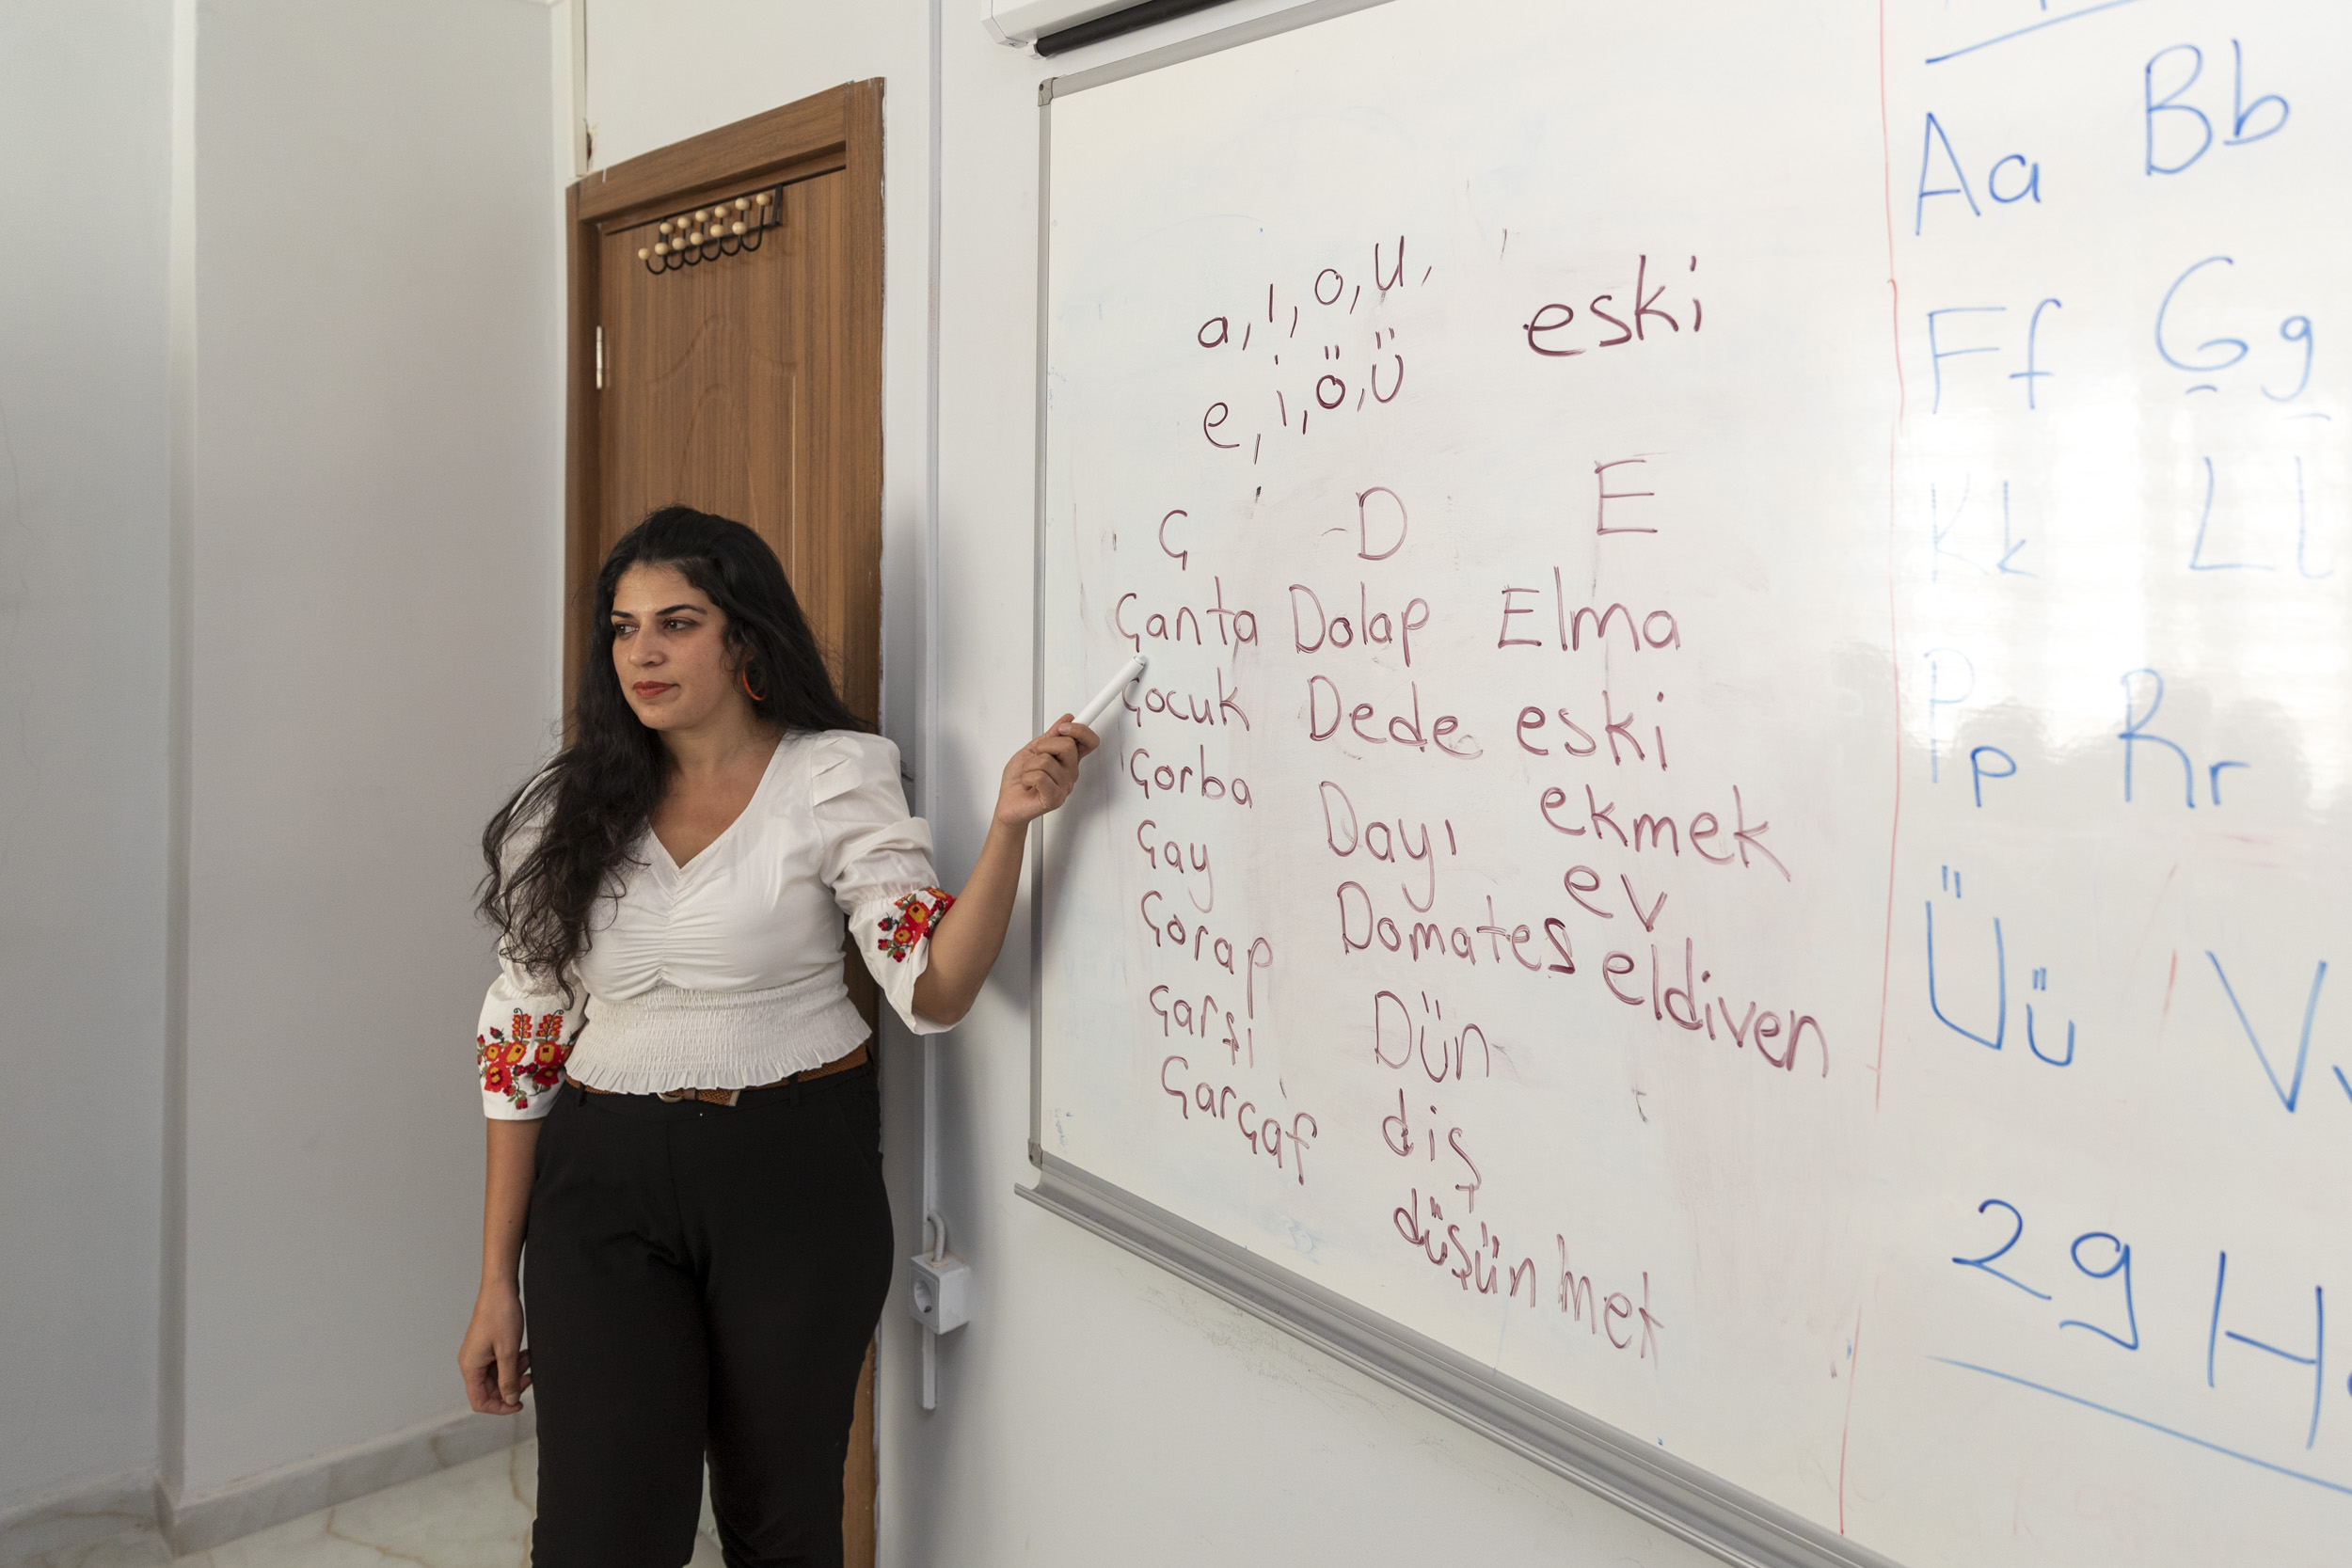 a, ı, o, u,
e, i, ö, ü
eski
Ç D E
Çanta Dolap Elma
Çocuk Dede eski
Çorba Dayı ekmek
Çay Domates ev
Çorap Dün eldiven
Çarşi diş
Çarçaf düşünmek
Aa Bb
Ff Gg
Kk Ll
Pp Rr
Üü Vv
29 H